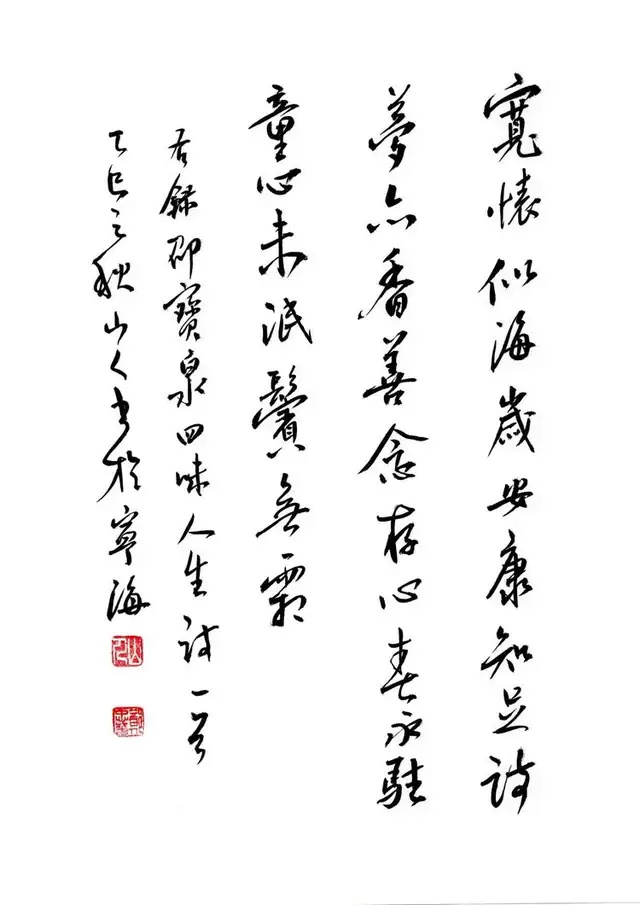 寬懷似海歲安康知足詩
夢亦香善念存心春永駐
童心未泯鬢無霜
右錄邵寶泉四味人生詩一首
乙巳之秋山人書於寧海